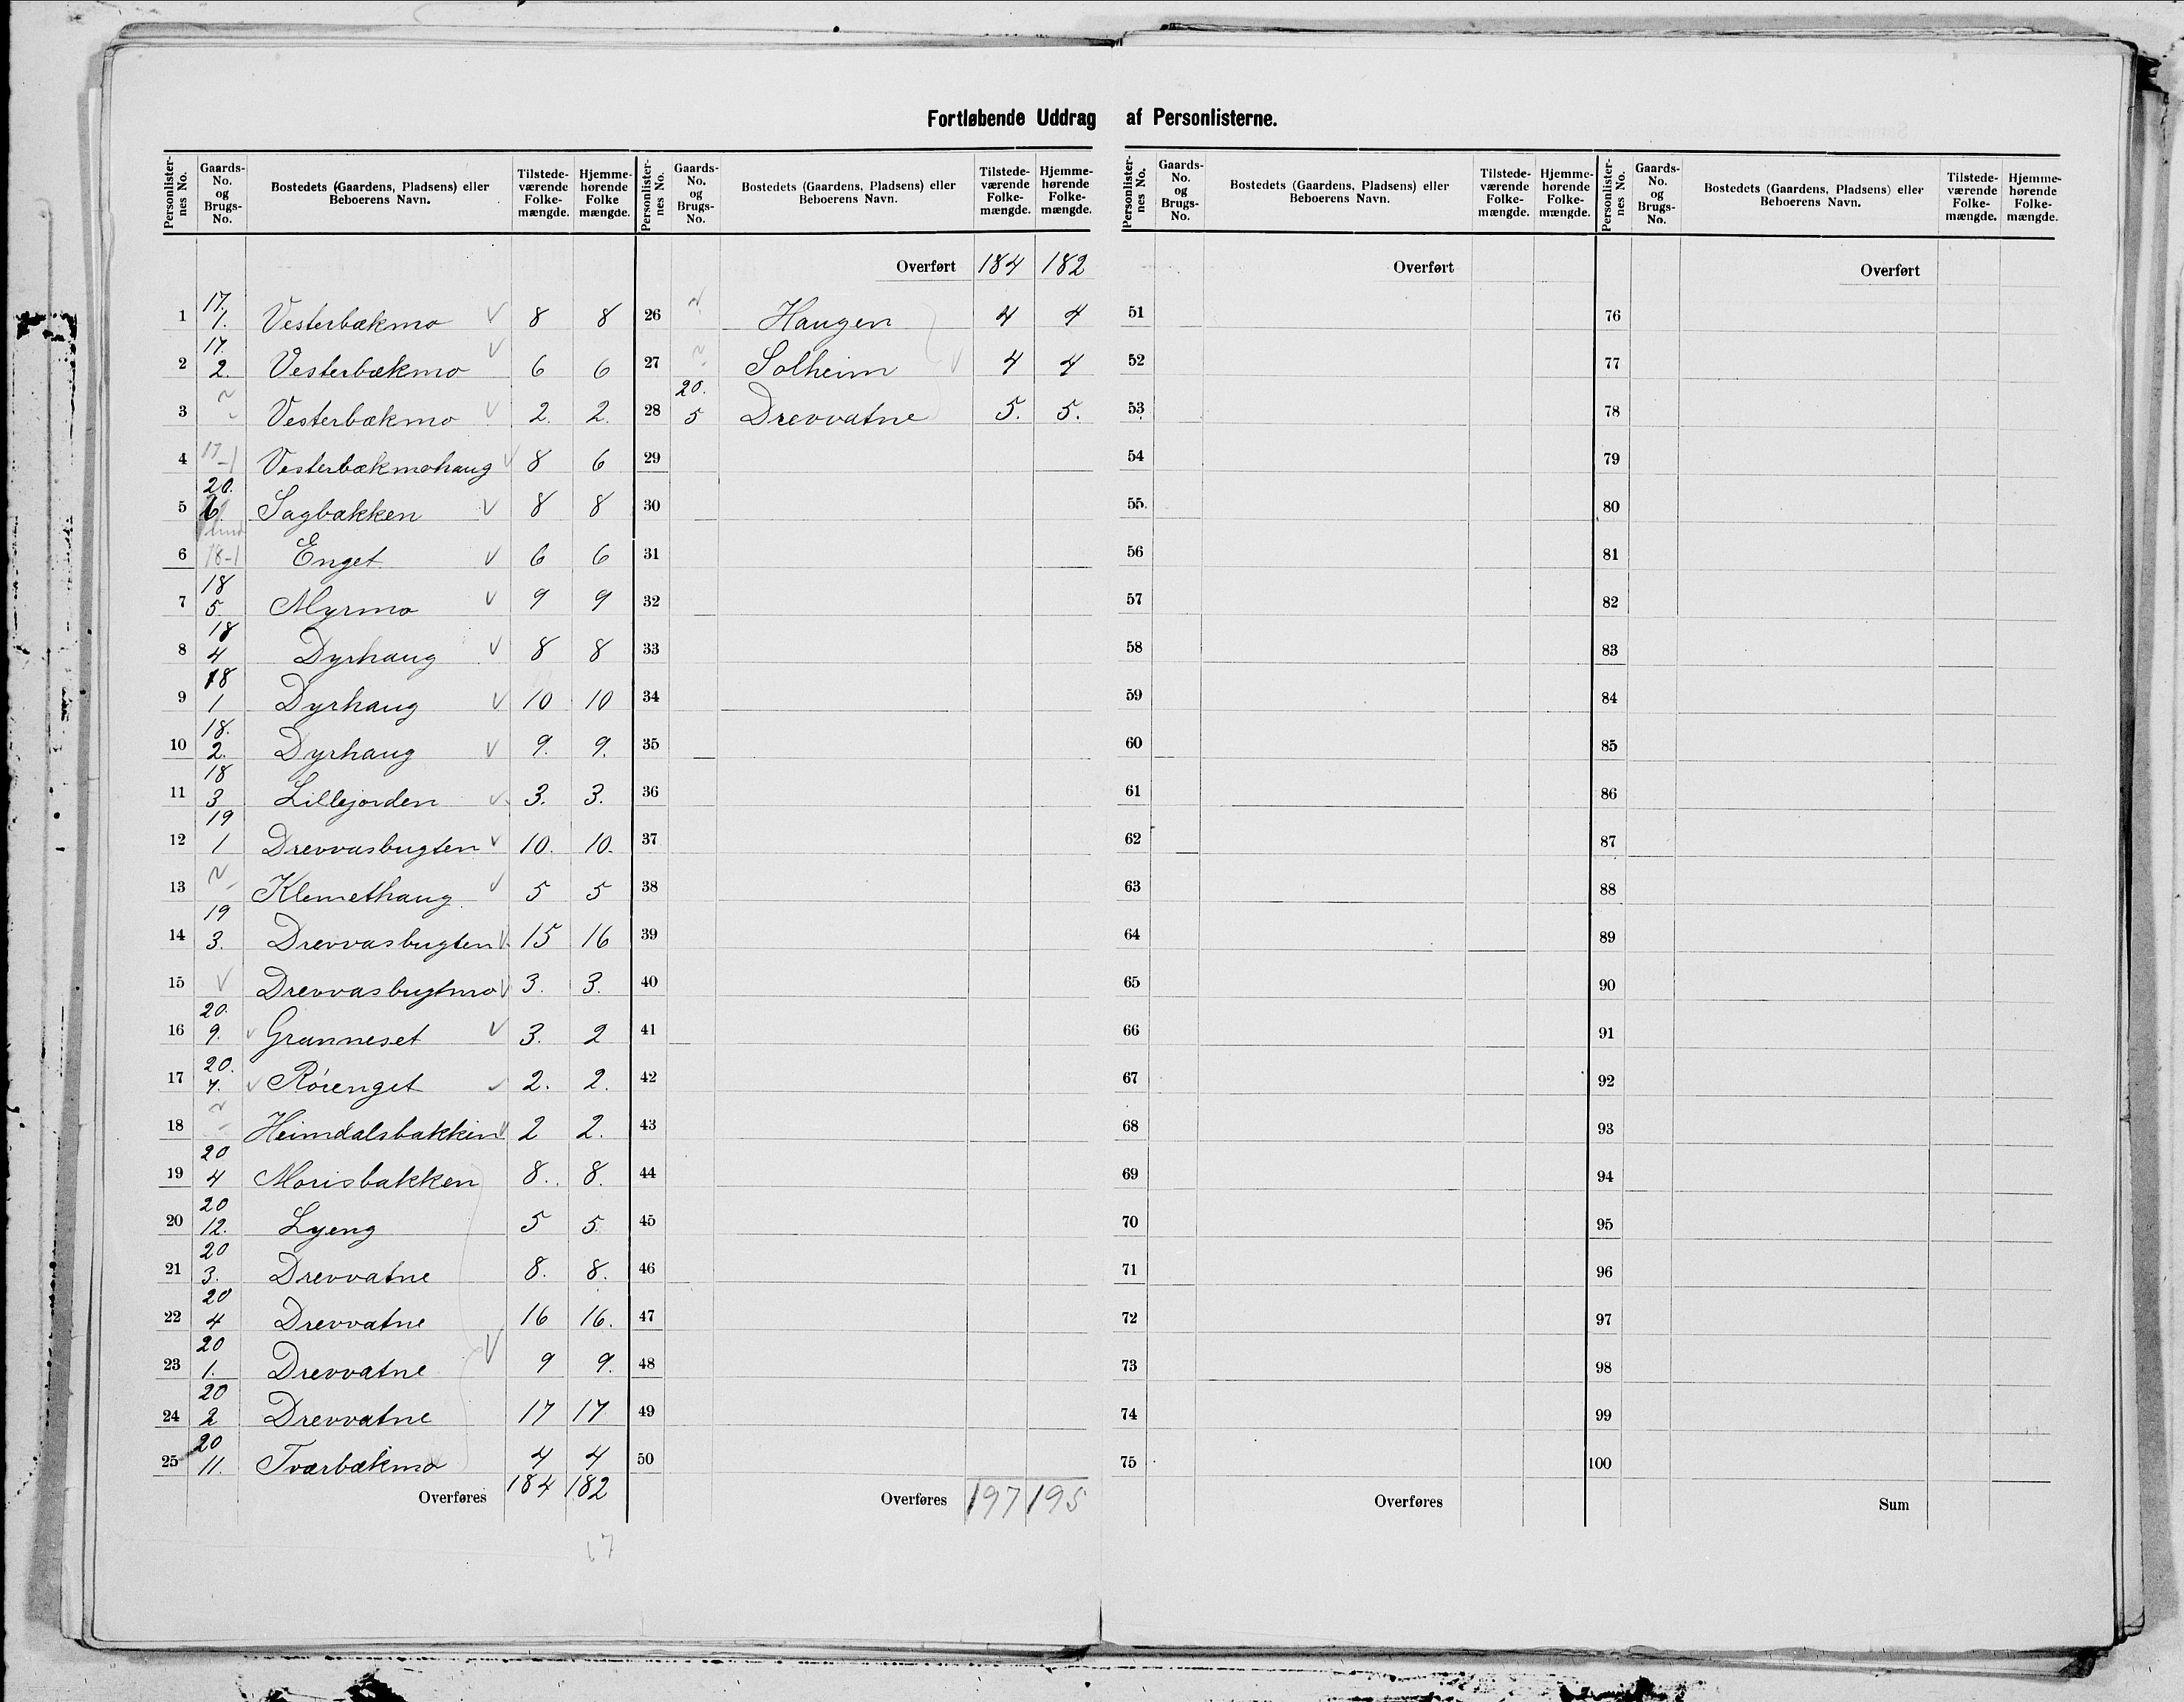 Fortløbende Uddrag af Personlisterne.
Personlisternes No. Gaards-No. og Brugs-No. Bostedets (Gaardens, Pladsens) eller Beboerens Navn. Tilstedeværende Folkemængde. Hjemmehørende Folkemængde.
1 17. 1. Vesterbækmo 8 8
2 17. 2. Vesterbækmo 6 6
3 Vesterbækmo 2. 2.
4 17-1 Vesterbækmohaug 8 6
5 20. 6 Sagbakken 8 8
6 18-1 Enget 6 6
7 18 5. Myrmo 9 9
8 18 4 Dyrhaug 8 8
9 18 1 Dyrhaug 10 10
10 18. 2. Dyrhaug 9. 9.
11 18 3 Lillejorden 3. 3.
12 19 1 Drevvasbugten 10. 10.
13 Klemethaug 5 5
14 19 3. Drevvasbugten 15 16
15 Drevvasbugtmo 3. 3.
16 20. 9. Granneset 3. 2
17 20. 7. Röienget 2. 2.
18 Heimdalsbakken 2 2.
19 20 4 Morisbakken 8. 8.
20 20 12. Lyeng 5 5
21 20 3. Drevvatne 8. 8.
22 20 4 Drevvatne 16 16.
23 20 1. Drevvatne 9 9.
24 20 2 Drevvatne 17 17
25 20 11. Tværbækmo 4 4
Overføres 184 182
17
Personlisternes No. Gaards-No. og Brugs-No. Bostedets (Gaardens, Pladsens) eller Beboerens Navn. Tilstedeværende Folkemængde. Hjemmehørende Folkemængde.
Overført 184 182
26 Haugen 4 4
27 Solheim 4 4
28 20. 5 Drevvatne 5. 5.
29
30
31
32
33
34
35
36
37
38
39
40
41
42
43
44
45
46
47
48
49
50
Overføres 197 195
Personlisternes No. Gaards-No. og Brugs-No. Bostedets (Gaardens, Pladsens) eller Beboerens Navn. Tilstedeværende Folkemængde. Hjemmehørende Folkemængde.
Overført
51
52
53
54
55
56
57
58
59
60
61
62
63
64
65
66
67
68
69
70
71
72
73
74
75
Overføres
Personlisternes No. Gaards-No. og Brugs-No. Bostedets (Gaardens, Pladsens) eller Beboerens Navn. Tilstedeværende Folkemængde. Hjemmehørende Folkemængde.
Overført
76
77
78
79
80
81
82
83
84
85
86
87
88
89
90
91
92
93
94
95
96
97
98
99
100
Sum